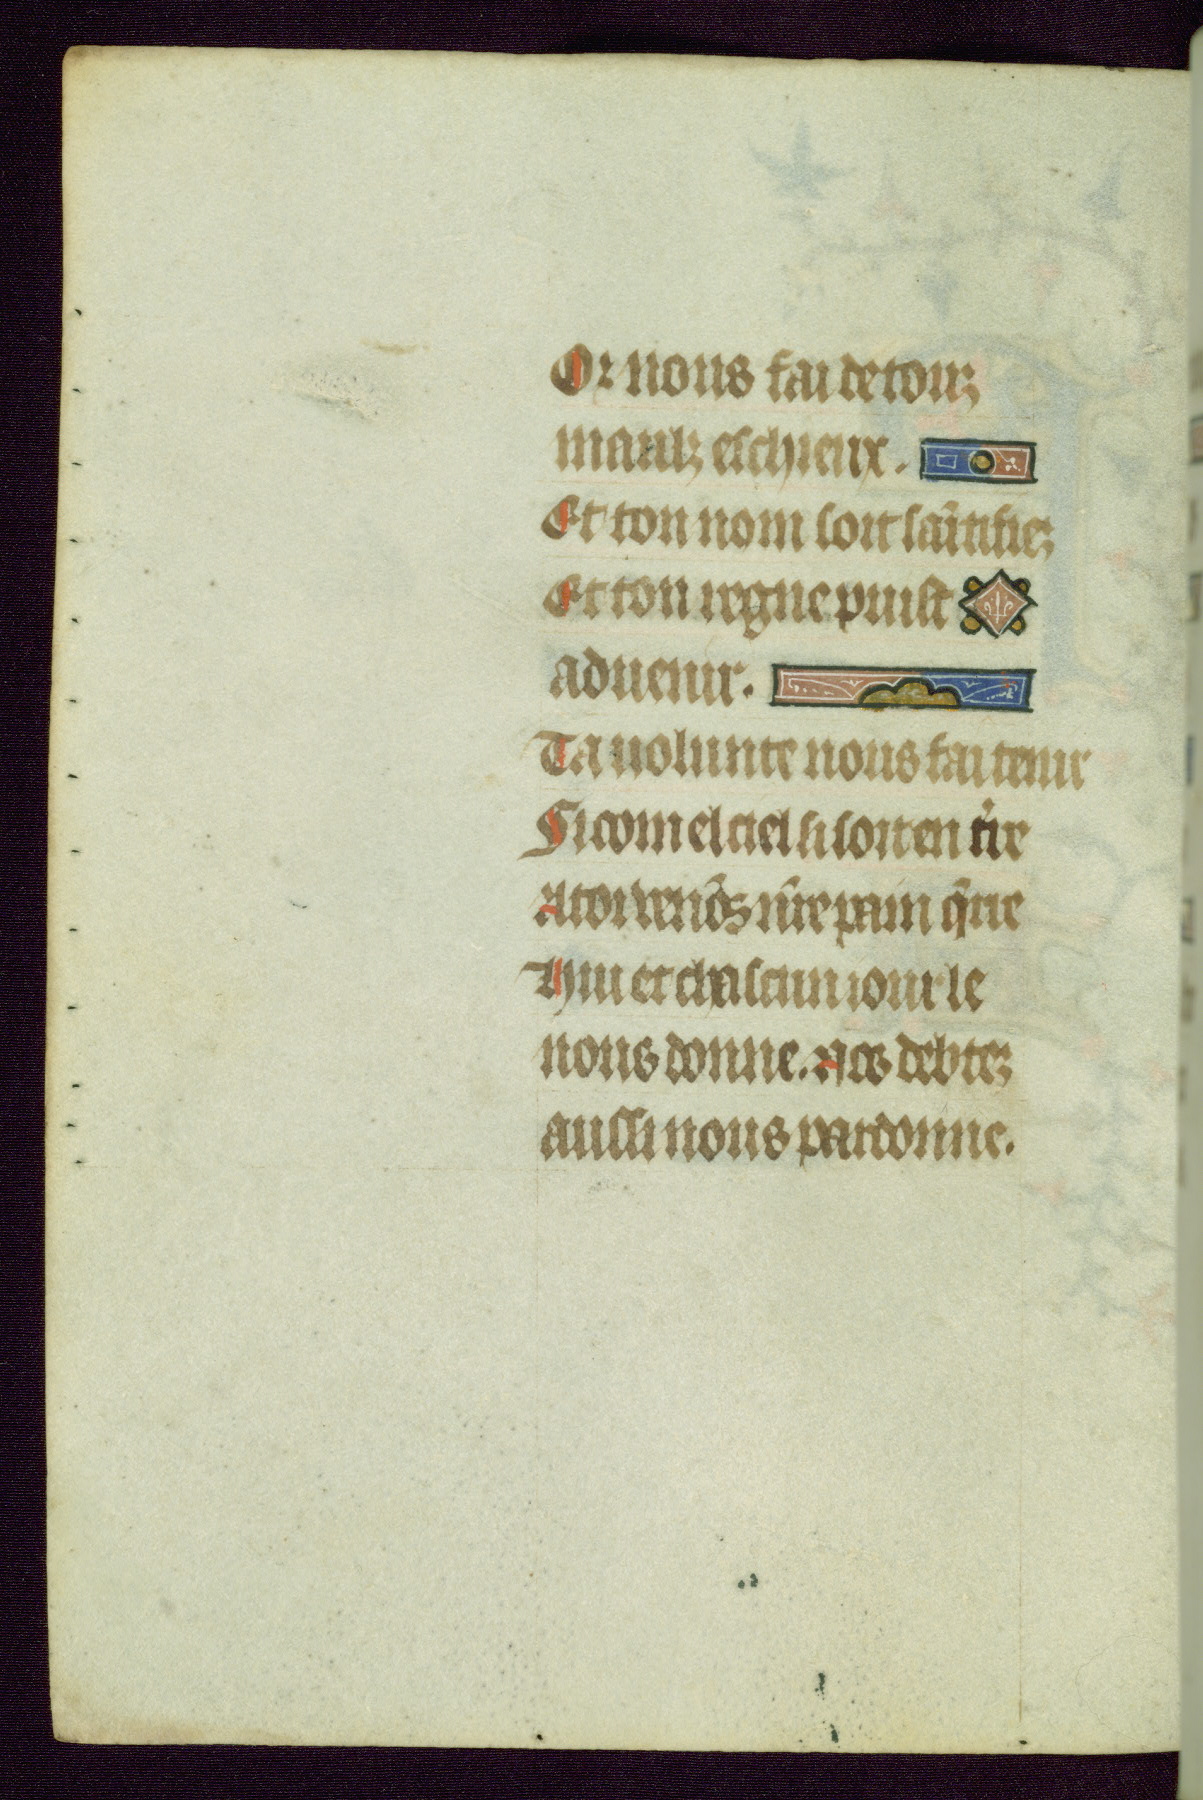 Or nous fai de touz
maulz eschieux.
Et ton nom soit saĩtifiez
Et ton regne puist
aduenir.
Ta uolunte nous fai tenir
Si com el ciel si soit en t̾re
A toi nr̃e pain q̃rre
Hui et chascun iour le
nous donne. Noz debtez
aussi nous pardonne.